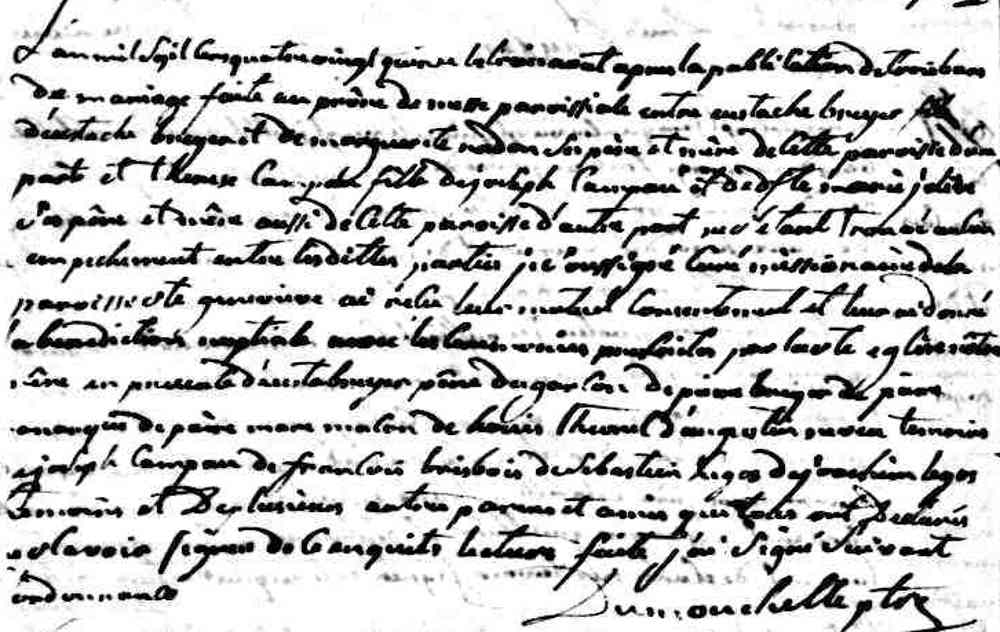 L'an mil sept cens quatre vingt quinze le trois aout apres la publication de trois bans
de mariage faite au prône de messe paroissiale entre eustache bruyer fils
d'eustache bruyer et de marguerite nadon ses père et mère de cette paroisse d'une
part et therese Campau fille de joseph Campau et de marie
ses père et mère aussi de cette paroisse d'autre part ne s'étant trouvé aucun
empechement entre lesdittes parties je soussigné curé missionaire de la
paroisse ste genevieve ai reçu leur mutuel consentement et leur ai donné
la benediction nuptiale avec les ceremonies prescrites par la ste eglise nôtre
mère en presence d'eustache bruyer père du garçon de pierre bruyer de pierre
de pierre marc de d'augustin temoins
de joseph Campau de francois brisbois de sebastien legos de joachim legos
temoins et de plusieurs autres parens et amis qui tous ont declarés
ne savoir signer de ce enquits lecture faite j'ai signé suivant
l'ordonnance
Dumouchelle ptre